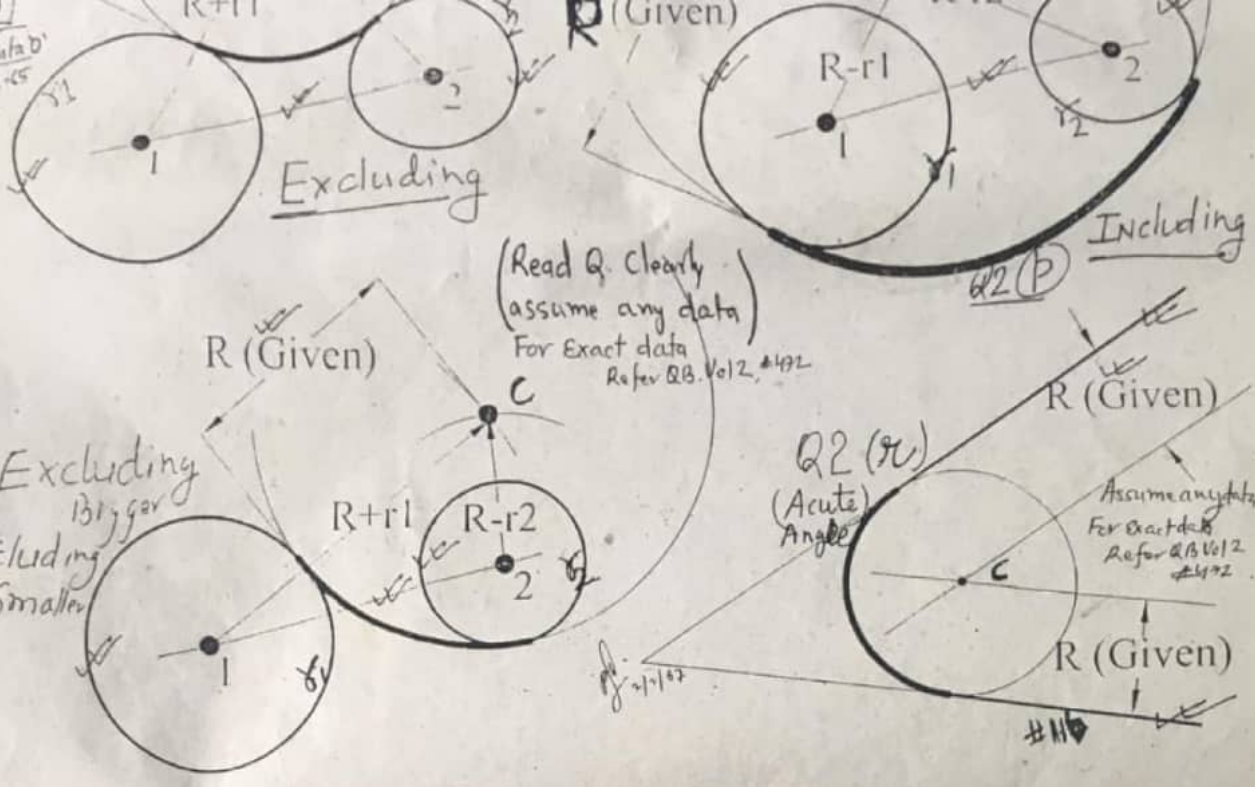 R+r1
r1
1
2
Excluding
(Given)
R-r1
1
r1
2
r2
Including
Q2 (P)
(Read Q. Clearly
assume any data)
For Exact data
Refer QB.Vol 2, #492
R (Given)
C
Excluding
Bigger
Smaller
R+r1
R-r2
2
1
r1
Q2 (r)
(Acute)
Angle
R (Given)
Assume any data
For Exact data
Refer QB Vol 2
#492
C
R (Given)
#116